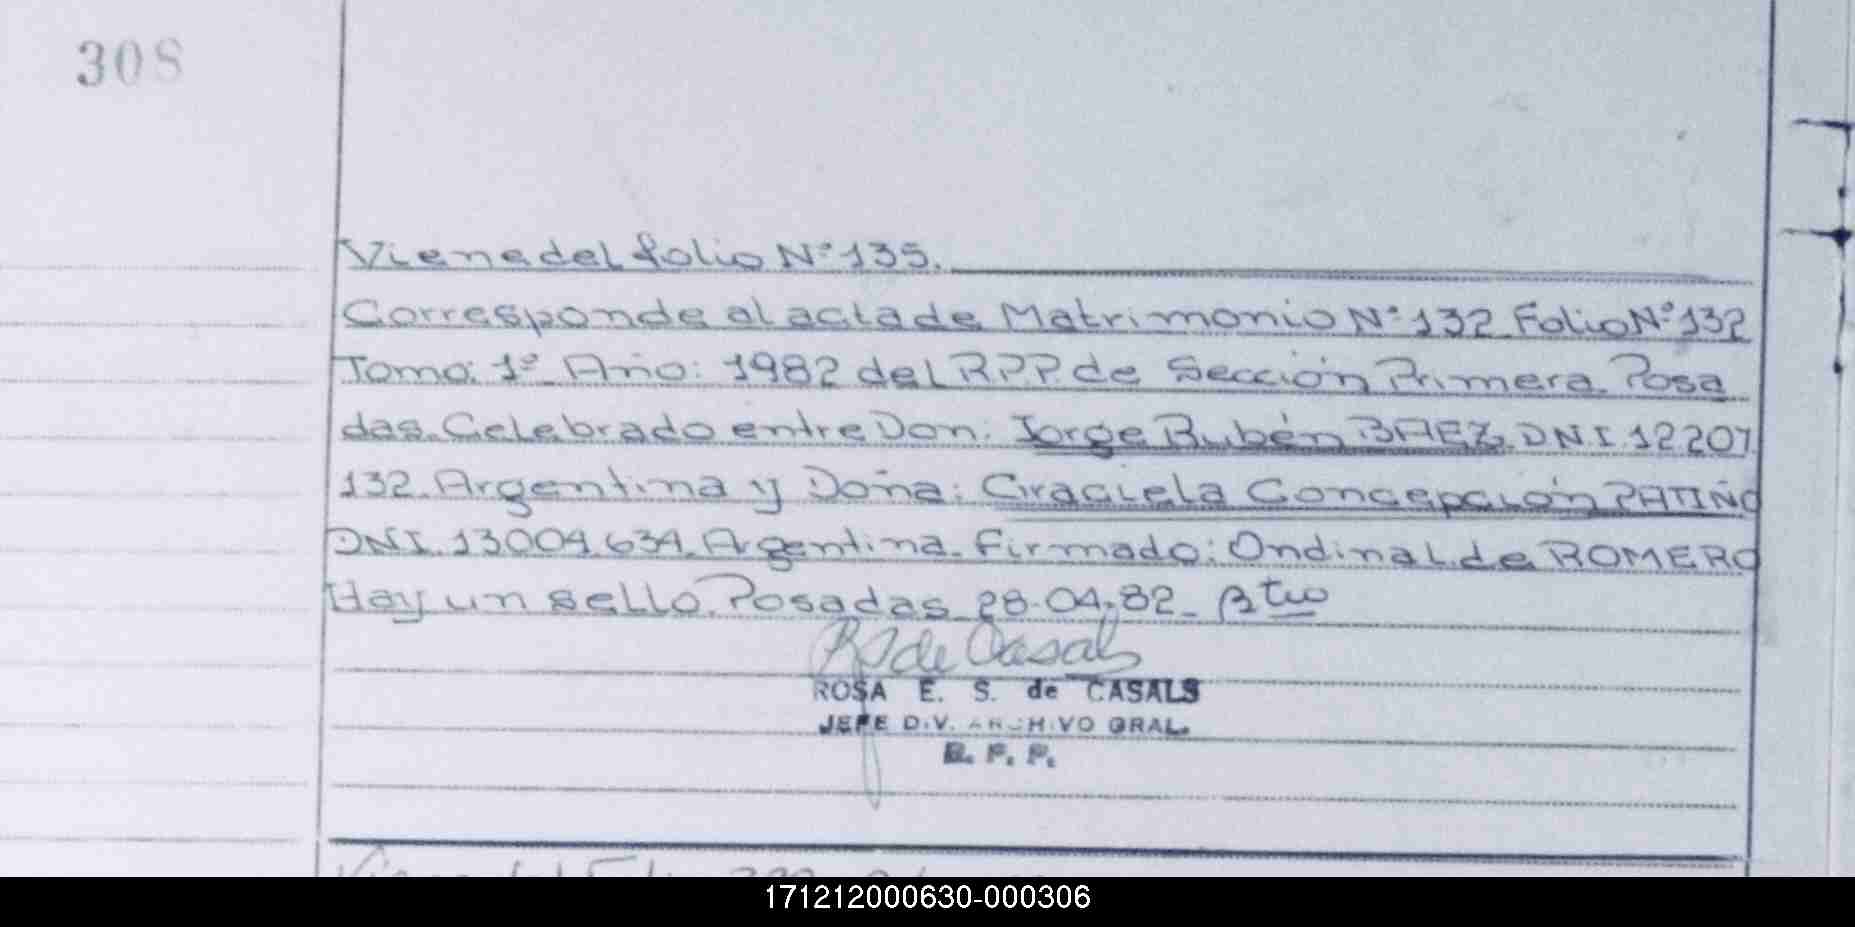 308
Viene del folio N° 135.
Corresponde al acta de Matrimonio N° 132 Folio N° 132
Tomo: 1° Año: 1982 del R.P.P. de Sección Primera. Posa
das. Celebrado entre Don: Jorge Rubén BAEZ. DNI 12 207
132. Argentina y Doña: Graciela Concepción PATIÑO
DNI. 13004.634. Argentina. Firmado: Ondina L. de ROMERO
Hay un sello. Posadas 28-04-82
de Casals
ROSA E. S. de CASALS
JEFE DIV. ARCHIVO GRAL.
R. P. P.
171212000630-000306